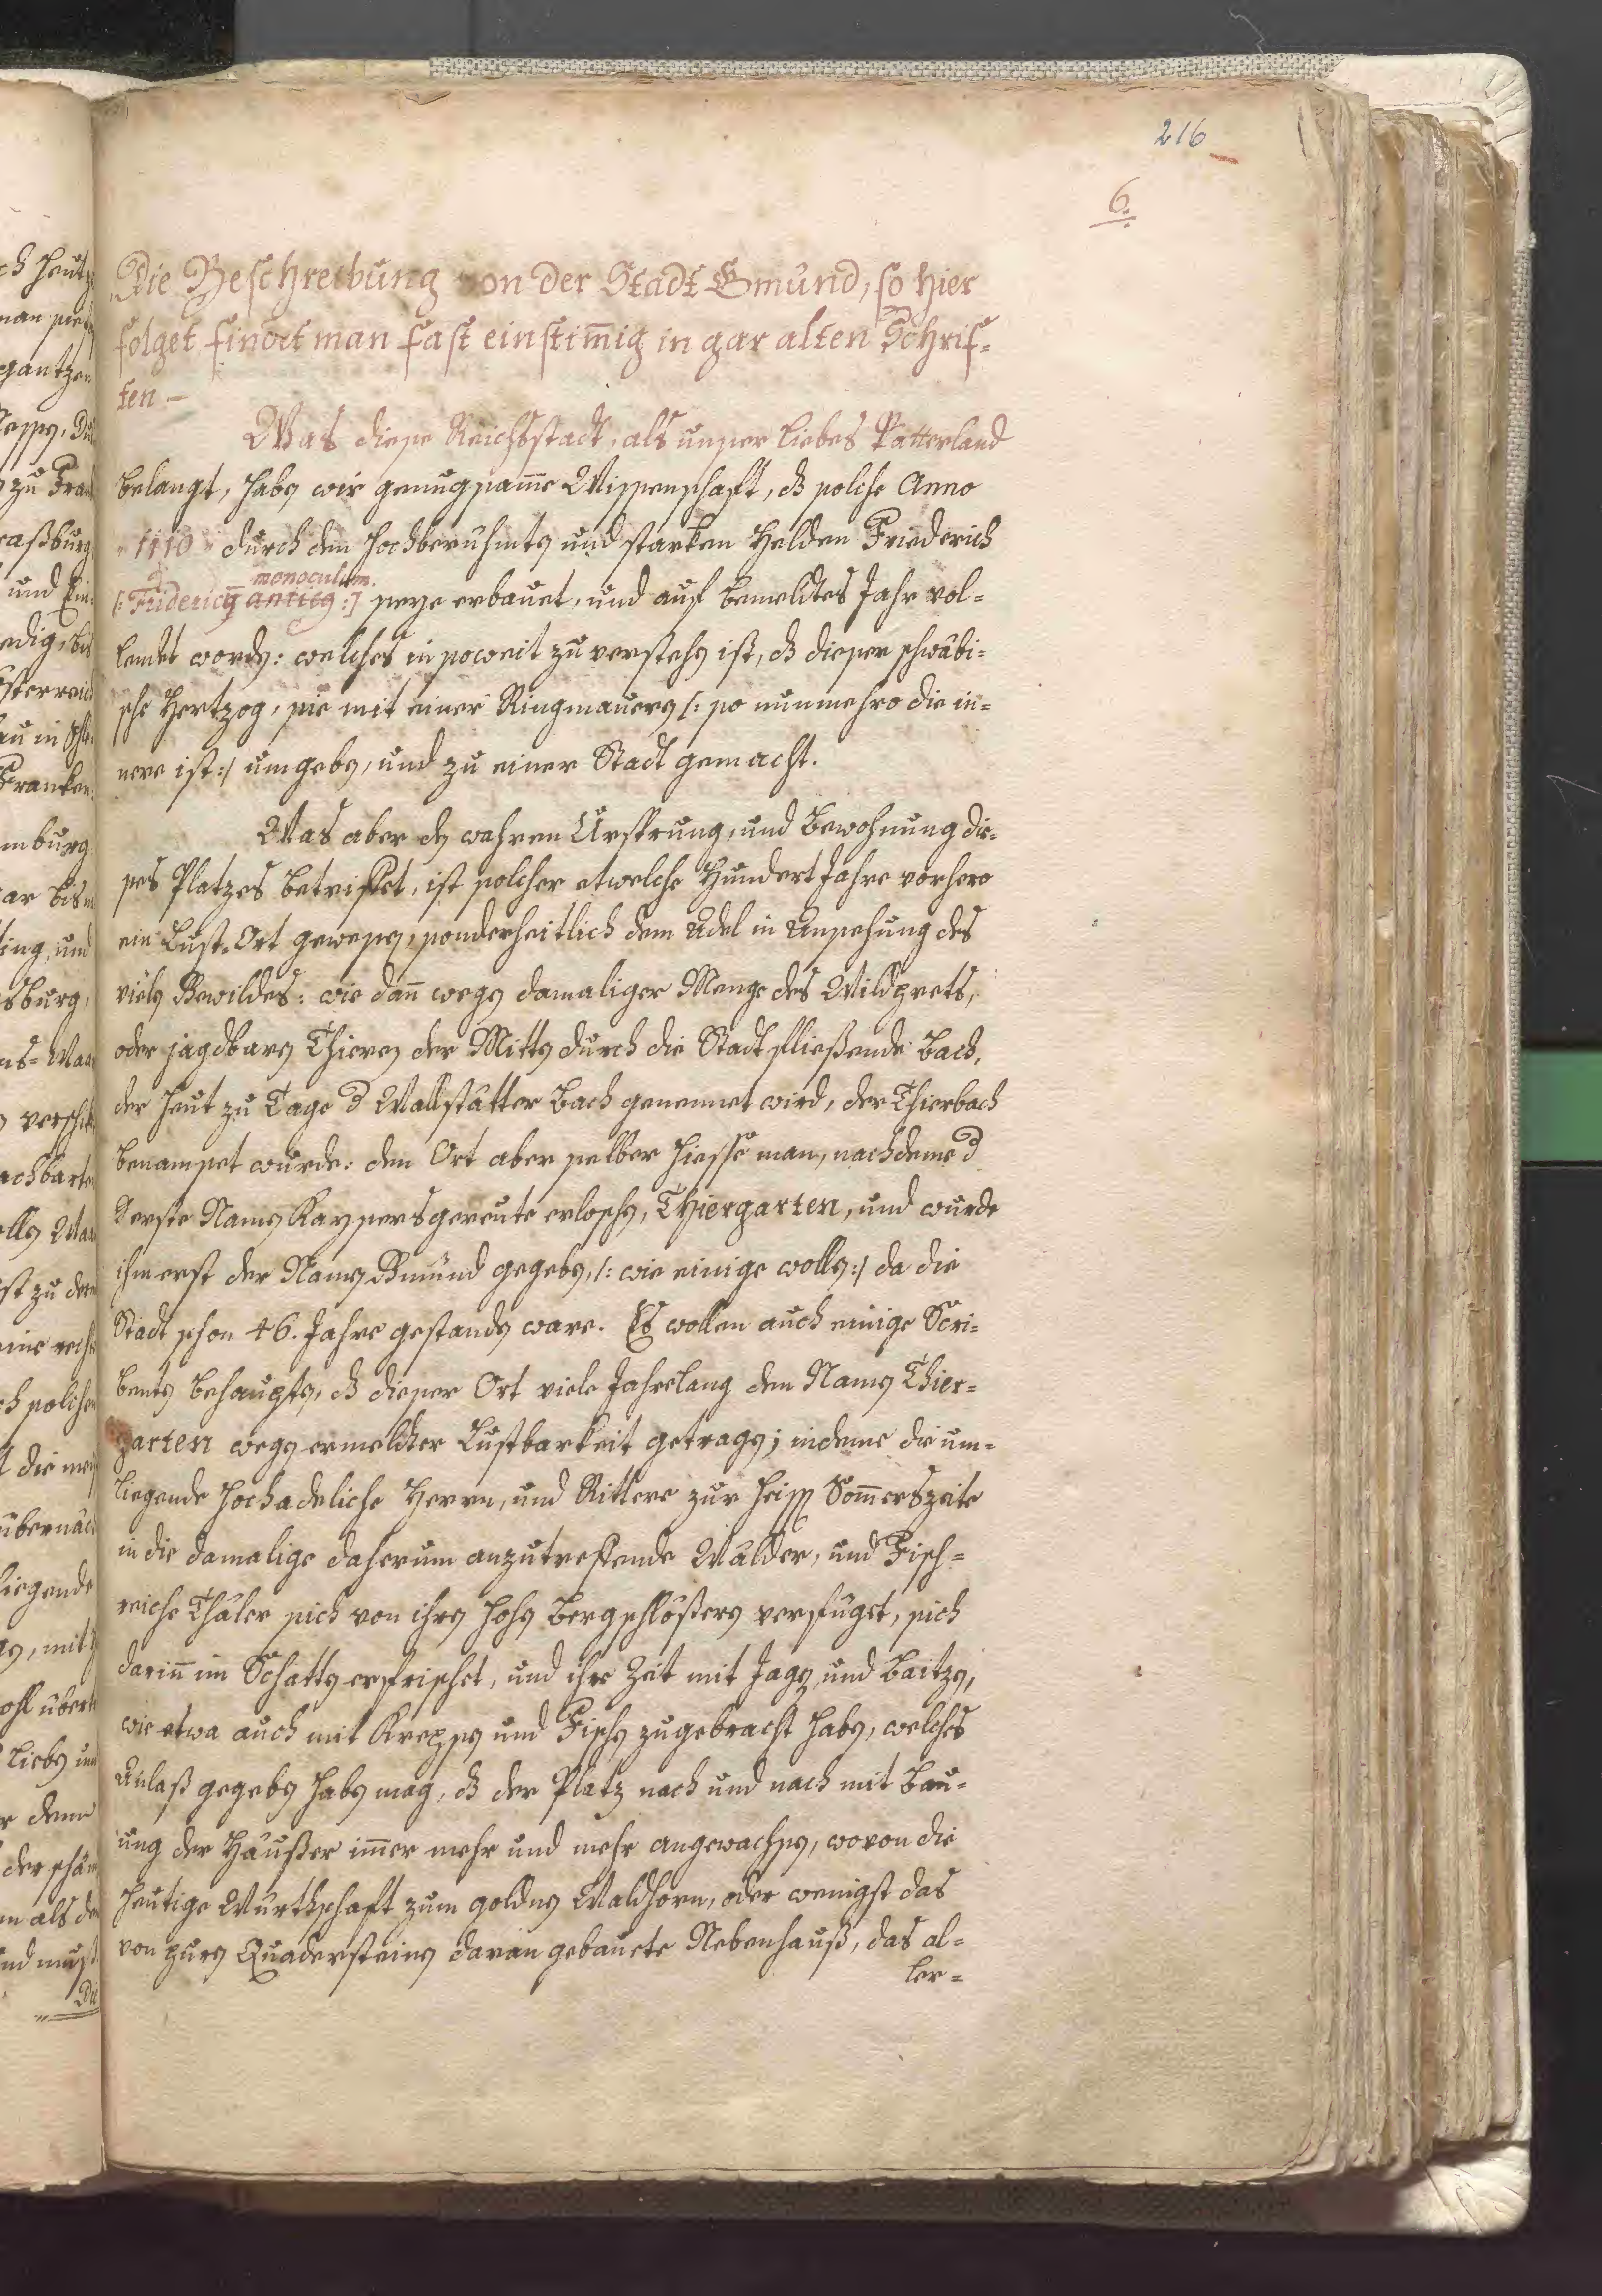 216
6.
Die Beschreibung von der Stadt Gmünd, so hier
folget findet man fast einstim̄ig in gar alten Schrif=
ten —
Was diese Reichsstadt, als unser liebes Vatterland
belangt, haben wir genugsam̄e Wissenschaft, dß solche Anno
1110 durch den hochberühmten und starken Helden Friederich
monoculum
[: Fridericq̄ anticq :] seye erbauet, und auf bemeldtes Jahr vol=
lendet worden: welches in soweit zu verstehen ist, dß dieser schwäbi=
sche Hertzog, sie mit einer Ringmauern /: so nunmehro die in=
nere ist :/ umgeben, und zu einer Stadt gemacht.
Was aber den wahren Ursprung, und Bewohnung die=
ses Platzes betriffet, ist solcher etwelche Hundert Jahre vorhero
ein Lust=Ort gewesen, sonderheitlich dem Adel in Ansehung des
vielen Gewildes: wie dan̄ wegen damaliger Menge des Wildprets,
oder jagdbaren Thieren der Mitten durch die Stadt fließende Bach,
der heut zu Tage d Wallstätter Bach genennet wird, der Thierbach
benamset wurde: den Ort aber selber hiesse man, nachdeme d
erste Namen Kaysersgereute erloschen, Thiergarten, und wurde
ihm erst der Namen Gmünd gegeben, /: wie einige wollen :/ da die
Stadt schon 46. Jahre gestanden ware. Es wollen auch einige Scri=
benten behaupten, dß dieser Ort viele Jahrelang den Namen Thier=
garten wegen ermeldter Lustbarkeit getragen; indeme die um=
liegende hochadeliche Herrn, und Rittere zur heissen Som̄erszeite
in die damalige daherum anzutreffende Wälder, und Fisch=
reiche Thäler sich von ihren hohen Bergschlößern verfüget, sich
darin̄ im Schatten erfrischet, und ihre Zeit mit Jagen, und Baitzen,
wie etwa auch mit Krepsen und Fischen zugebracht haben, welches
Anlaß gegeben haben mag, dß der Platz nach und nach mit Bau=
ung der Häußer im̄er mehr und mehr angewachsen, wovon die
heutige Würthschaft zum goldnen Waldhorn, oder wenigst das
von puren Quadersteinen daran gebauete Nebenhauß, das al=
ler=